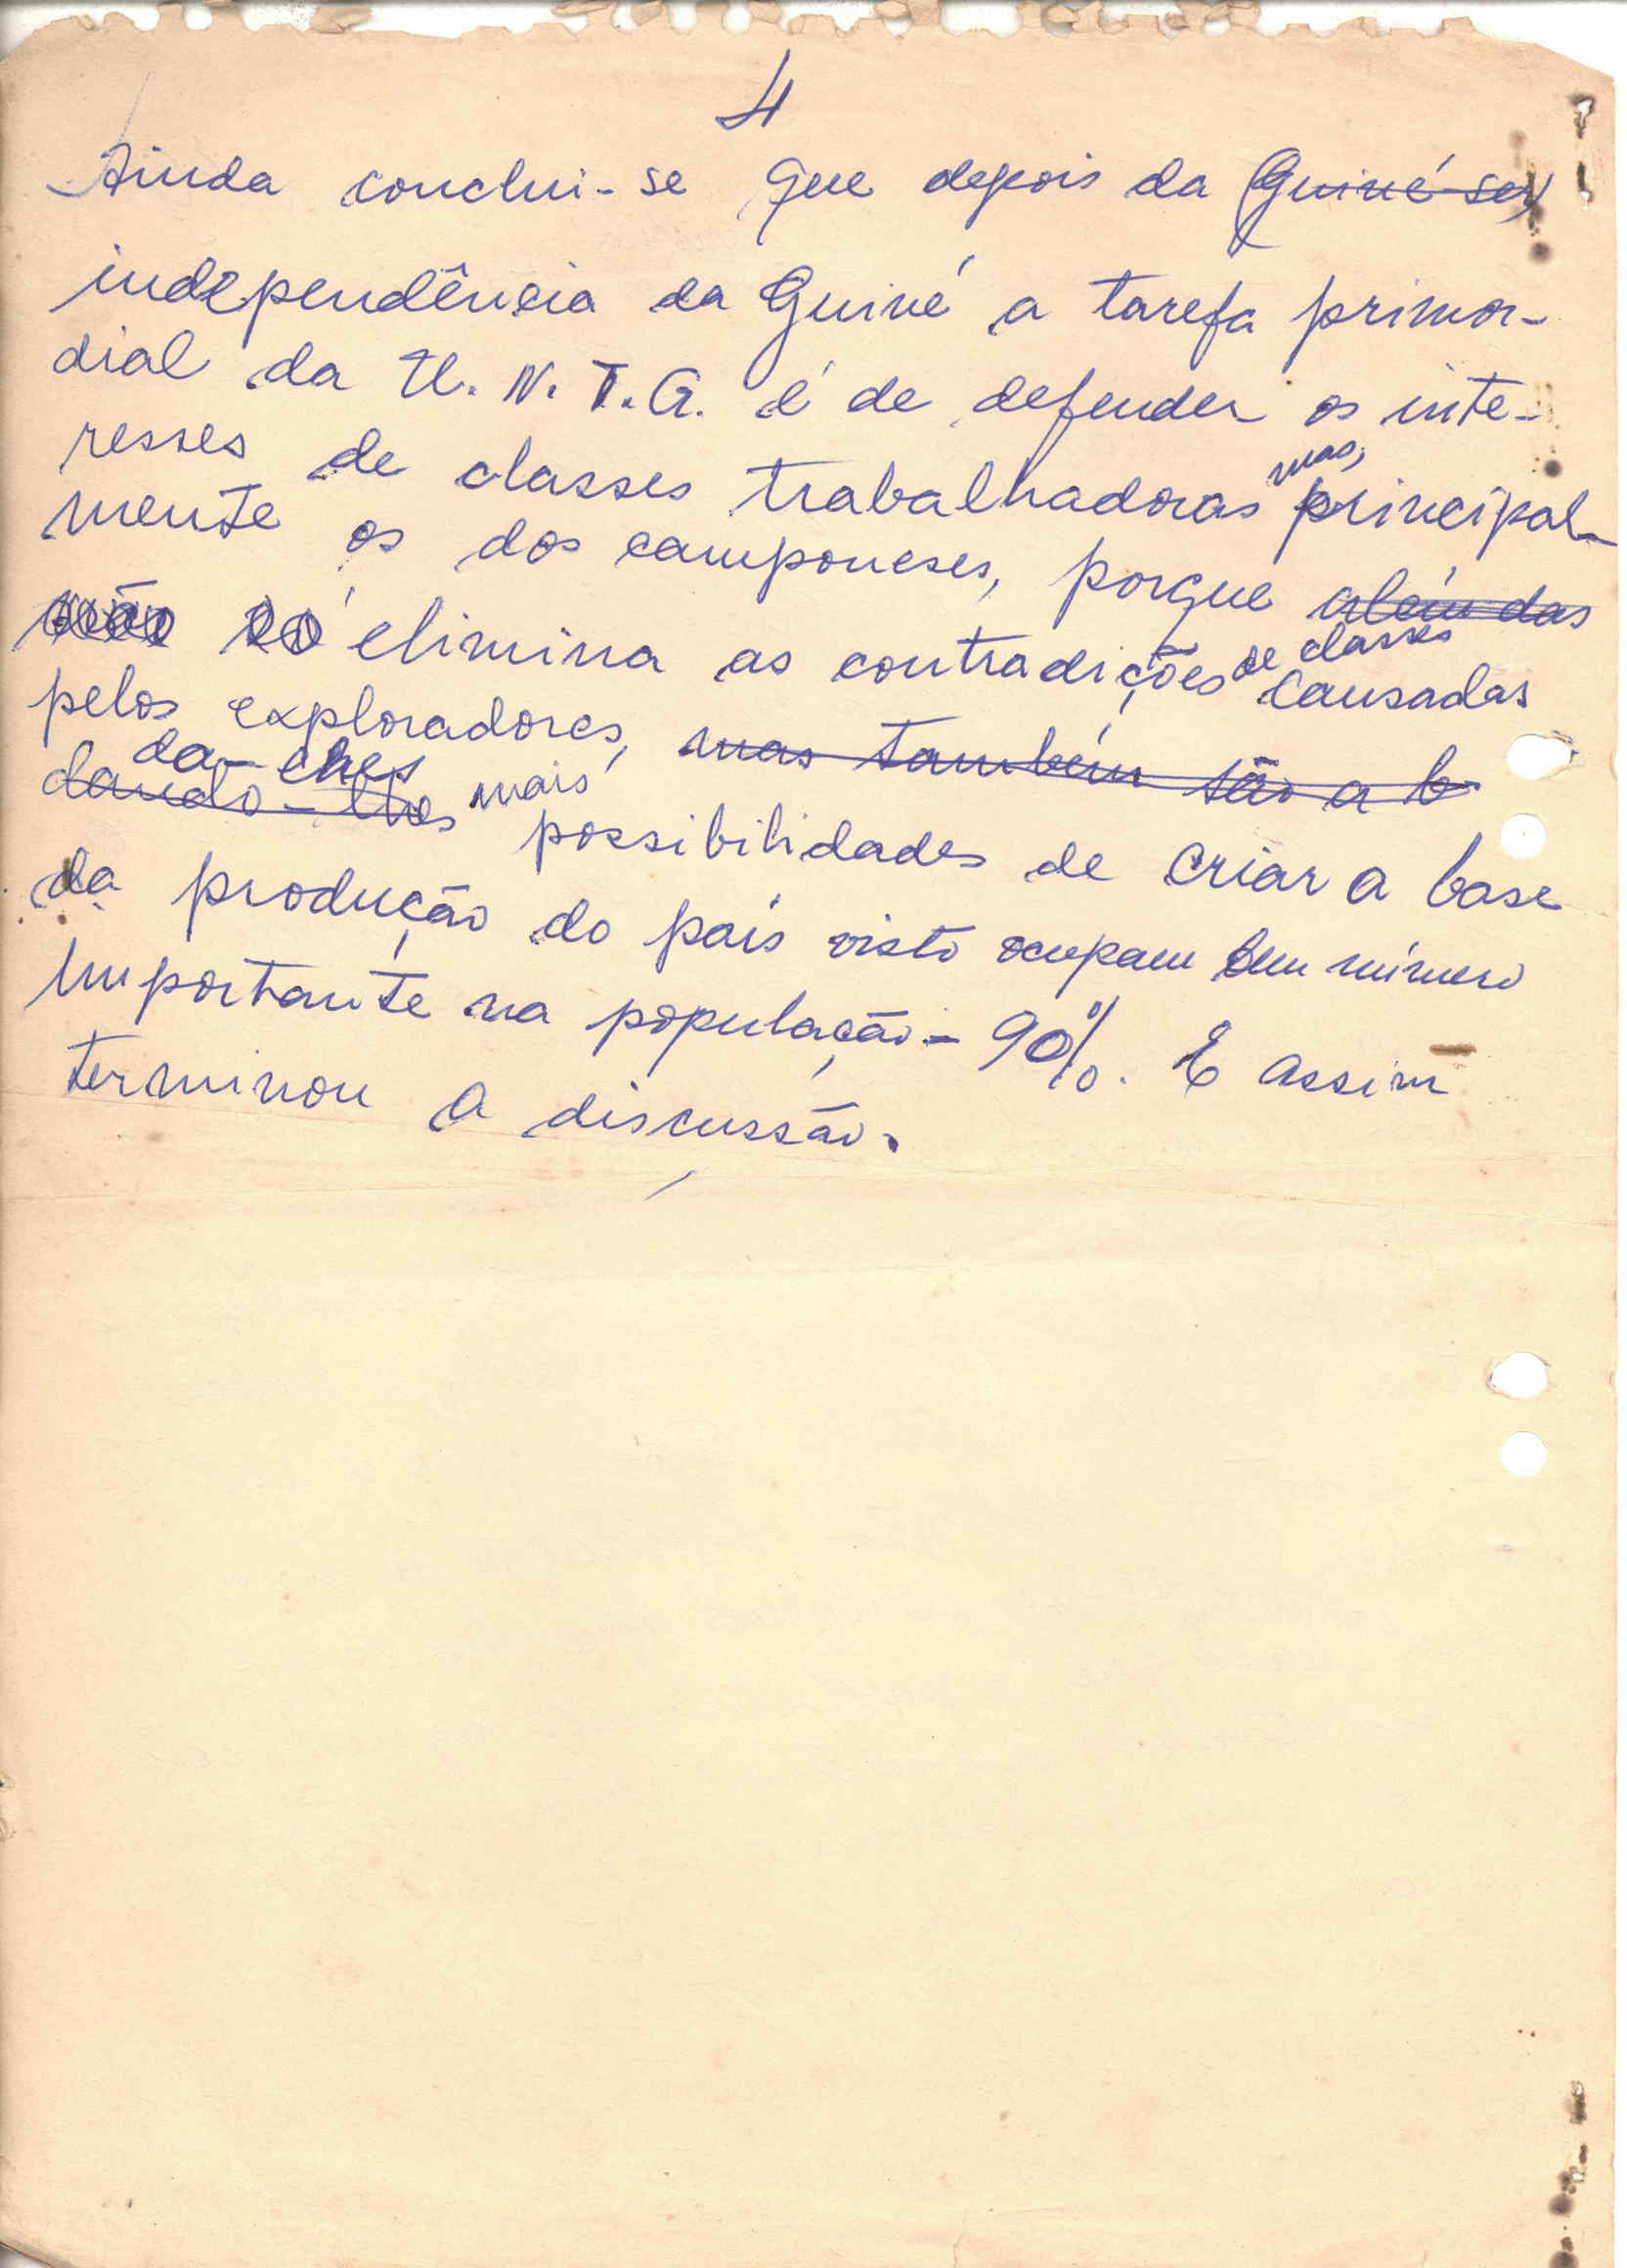 4
Ainda conclui-se que depois da (Guiné ser)
independência da Guiné a tarefa primor-
dial da U.N.T.G. é de defender os inte-
resses de classes trabalhadoras mas, principal-
mente os dos camponeses, porque além das
não só elimina as contradições de classes causadas
pelos exploradores, mas também são a b
da-lhes
dando-lhes mais possibilidades de criar a base
da produção do país visto ocupam um número
importante na população - 90%. E assim
terminou a discussão.